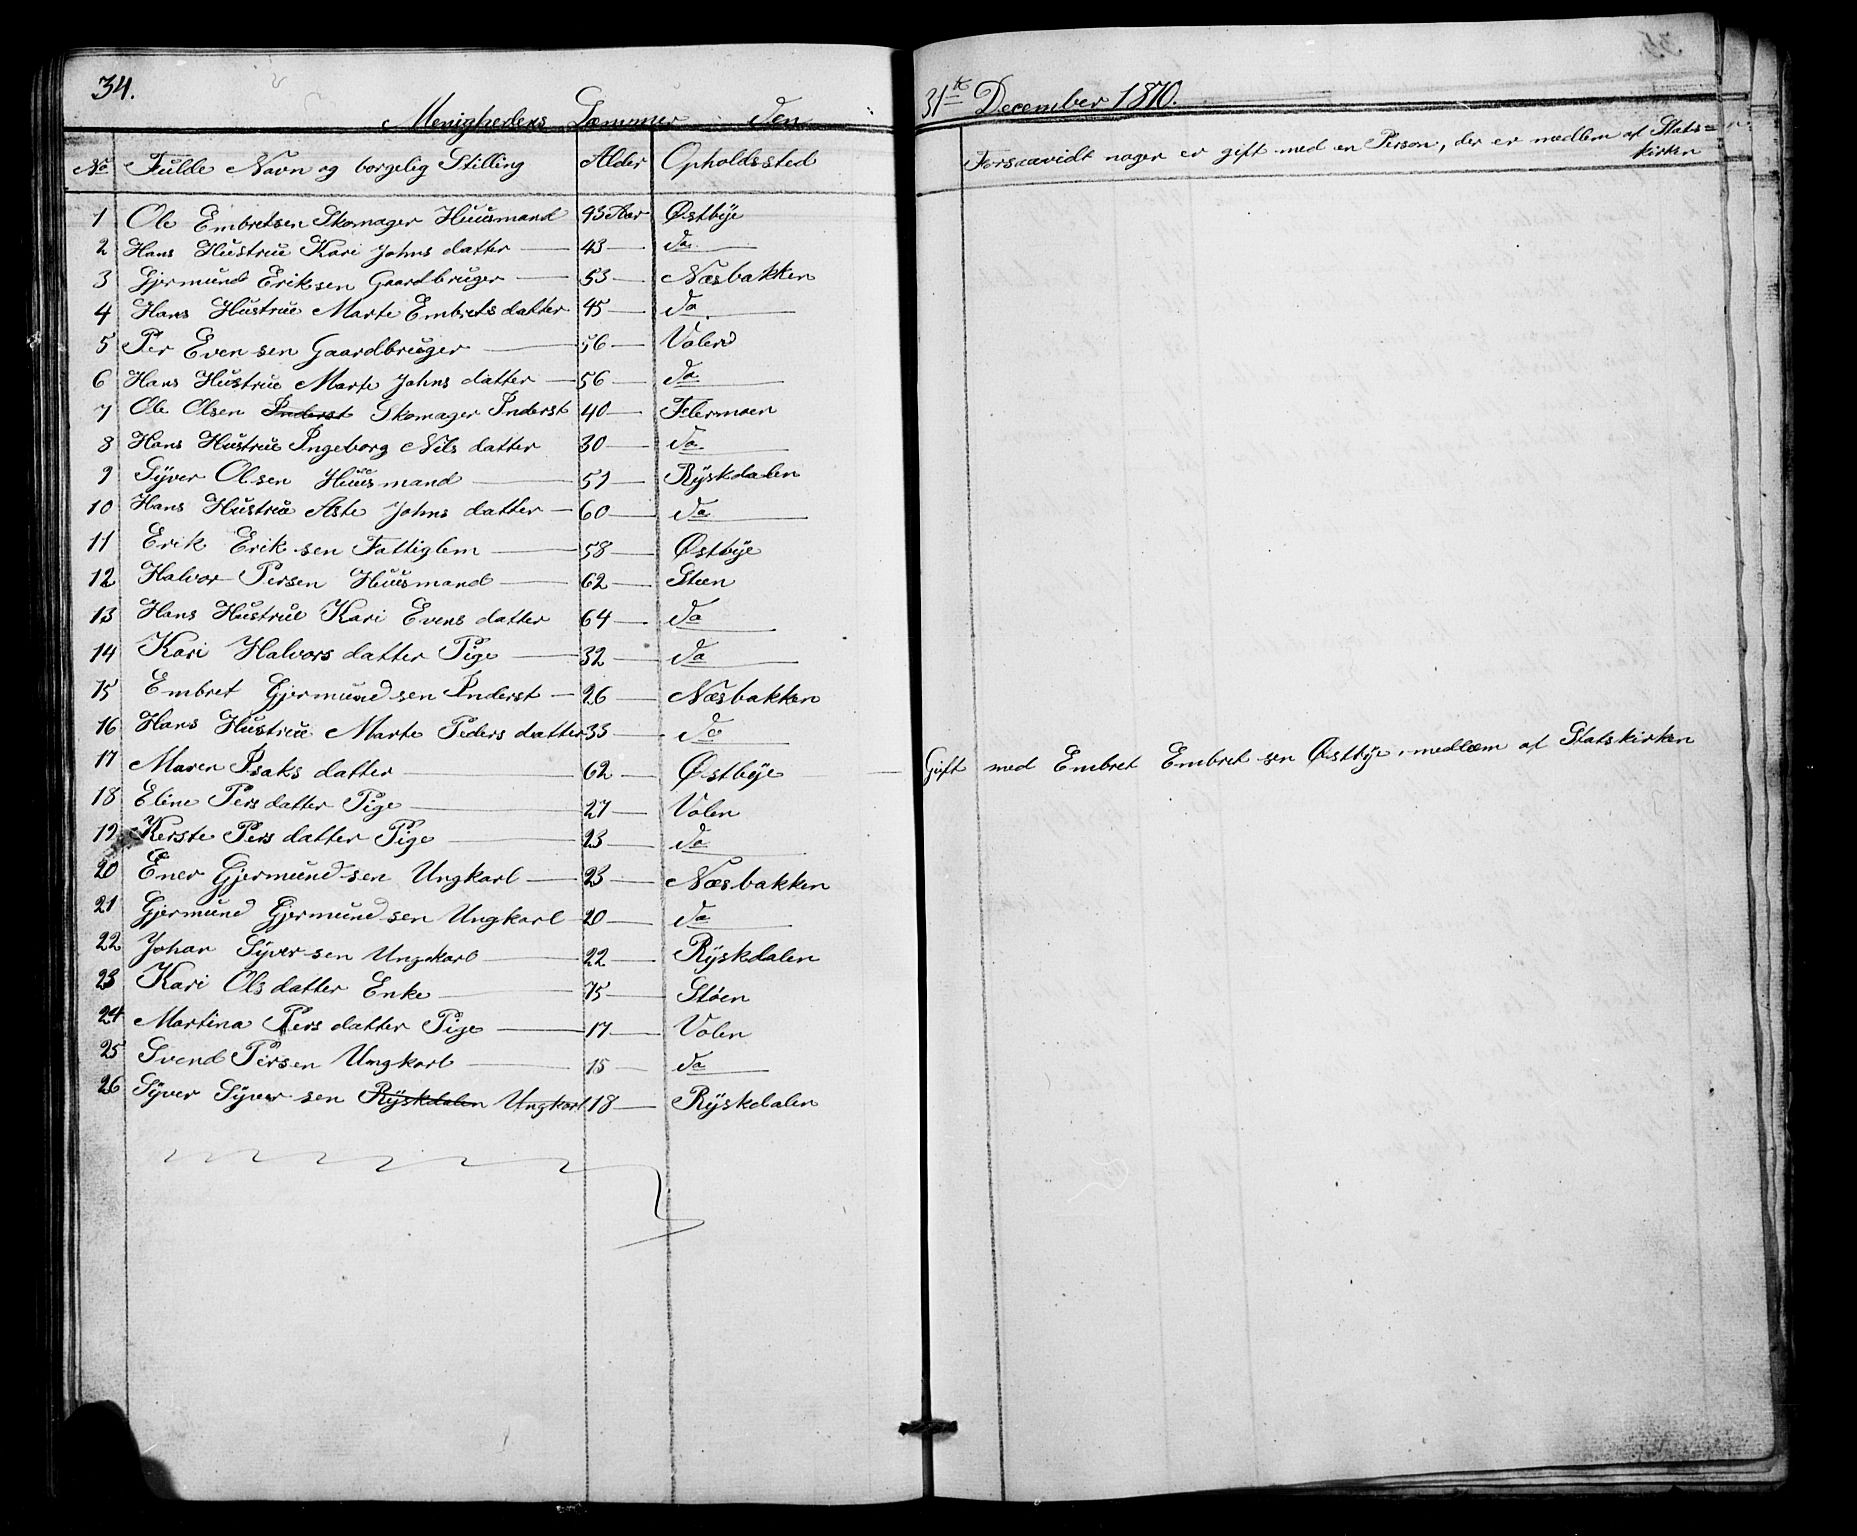 34.
Menighedens Lemmer den 31te December 1870.
No Fulde Navn og borgelig Stilling Alder Opholdssted Forsaavidt nogen er gift med en Person, der er medlem af Stats=
kirken
1 Ole Embretsen Skomager Huusmand 43 Aar Østbÿe
2 Hans Hustrue Kari Johns datter — 43 — do
3 Gjermund Eriksen Gaardbruger — 53 — Næsbakken
4 Hans Hustrue Marte Embrets datter 45 — do
5 Per Even sen Gaardbruger — 56 — Volen
6 Hans Hustrue Marte Johns datter — 56 — do
7 Ole Olsen Inderst Skomager Inderst 40 — Flermoen
8 Hans Hustrue Ingeborg Nils datter 30 — do
9 Syver Olsen Huusmand — 51 — Rÿskdalen
10 Hans Hustrue Aste Johns datter — 60 — do
11 Erik Erik sen Fattiglem — 58 — Østbÿe
12 Halvor Persen Huusmand — 62 — Støen
13 Hans Hustrue Kari Evens datter 64 — do
14 Kari Halvors datter Pige — 32 — do
15 Embret Gjermund sen Inderst — 26 — Næsbakken
16 Hans Hustrue Marte Peders datter 33 — do
17 Maren Isaks datter — 62 — Østbÿe — Gift med Embret Embret sen Østbÿe, medlem af Statskirken
18 Eline Pers datter Pige — 27 — Volen
19 Kerste Pers datter Pige — 23 — do
20 Ener Gjermund sen Ungkarl — 23 — Næsbakken
21 Gjermund Gjermund sen Ungkarl 20 — do
22 Johan Syver sen Ungkarl — 22 — Rÿskdalen
23 Kari Ols datter Enke — 75 — Støen
24 Martina Pers datter Pige — 17 — Volen
25 Svend Persen Ungkarl — 15 — do
26 Syver Syver sen Rÿskdalen Ungkarl 18 — Rÿskdalen